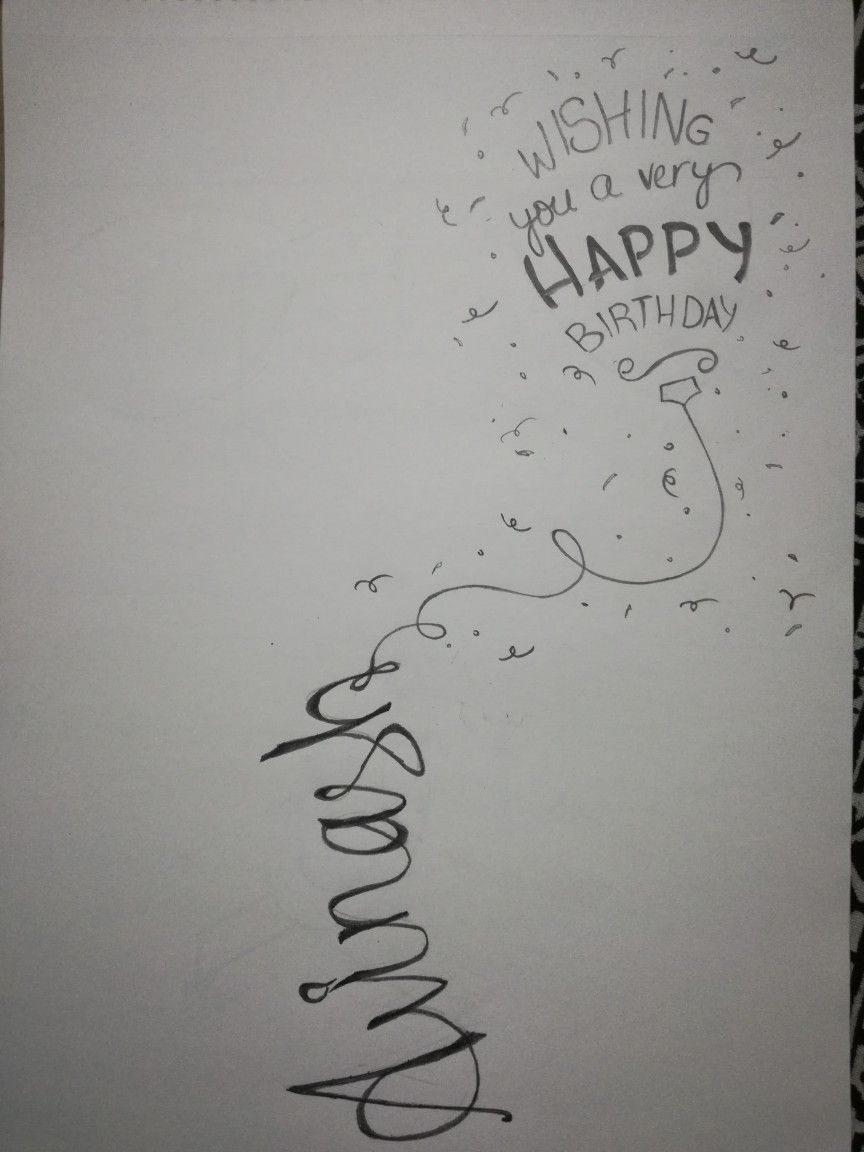 WISHING
you a very
HAPPY
BIRTHDAY
Avinash